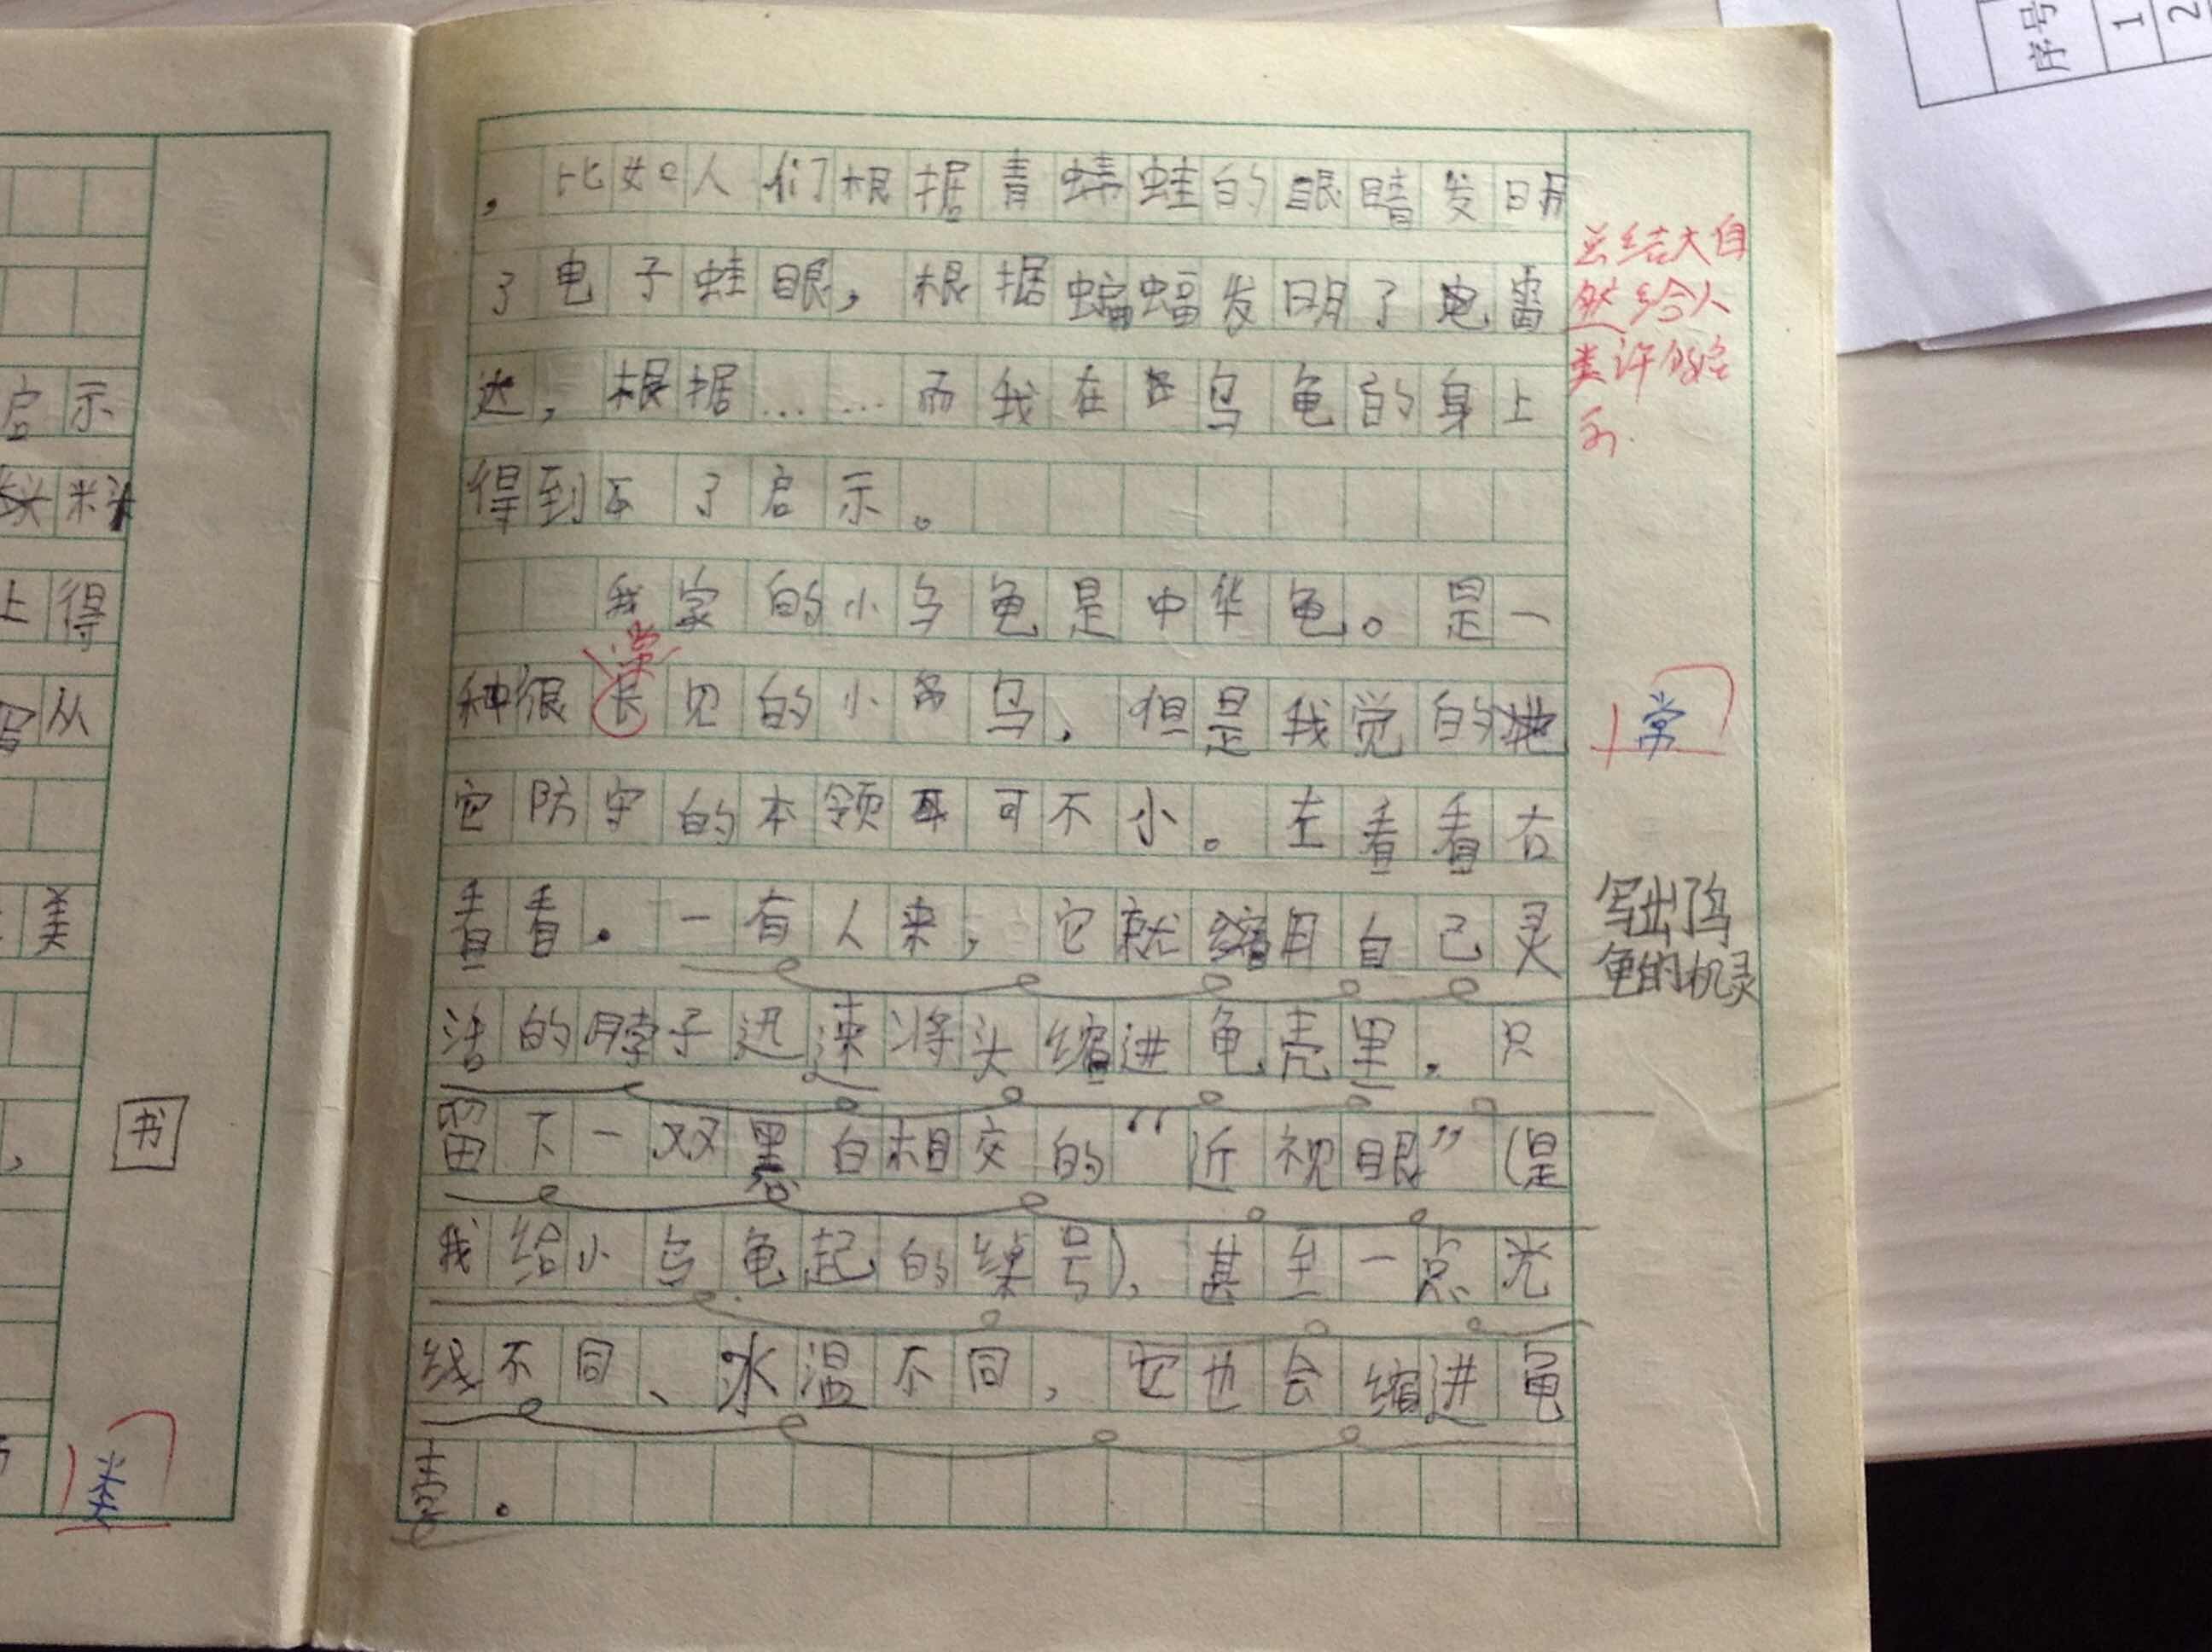 ，比如人们根据青蜻蛙的眼睛发明
了电子蛙眼，根据蝙蝠发明了电雷
达，根据……而我在乌龟的身上
得到了启示。
我家的小乌龟是中华龟。是一
种很长见的小乌，但是我觉的
它防守的本领可不小。左看看右
看看。一有人来，它就缩自己灵
活的脖子迅速将头缩进龟壳里，只
留下一双黑白相交的“近视眼”（是
我给小乌龟起的绰号），甚至一点光
线不同、水温不同，它也会缩进龟
壳。
常
总结大自
然给人
类许多
常
写出乌
龟的机灵
启示
上得
写从
美
书
类
序号
1
2